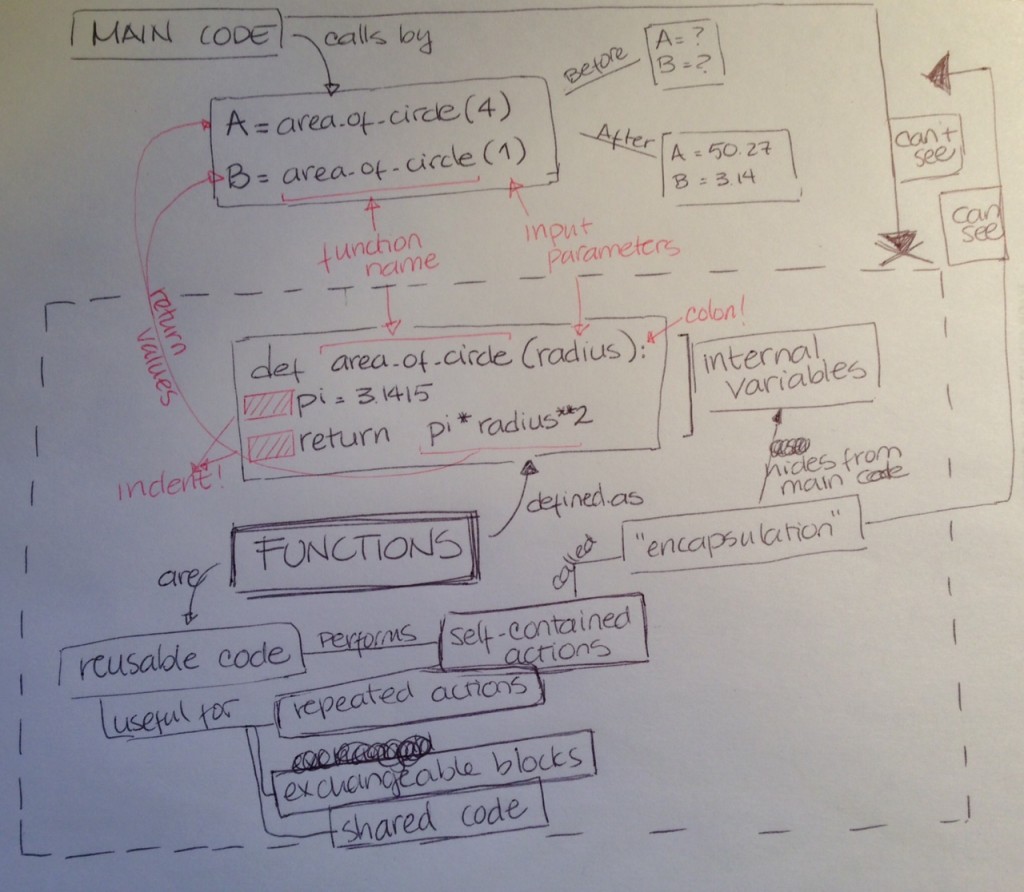 MAIN CODE
calls by
Before
A = ?
B = ?
A = area_of_circle(4)
B = area_of_circle(1)
After
A = 50.27
B = 3.14
can't
see
can
see
function
name
input
parameters
return
values
colon!
def area_of_circle (radius):
pi = 3.1415
return pi*radius**2
indent!
internal
variables
hides from
main code
defined as
FUNCTIONS
"encapsulation"
called
are
reusable code
performs
self-contained
actions
useful for
repeated actions
exchangeable blocks
shared code